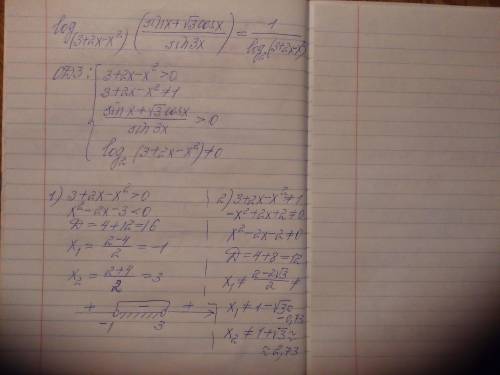 log_(3+2x-x²) ((sinx+√3cosx)/sin3x) = 1/log₂(3+2x-x²)
ОДЗ: { 3+2x-x²>0
3+2x-x²≠1
(sinx+√3cosx)/sin3x > 0
log₂(3+2x-x²)≠0
1) 3+2x-x²>0
x²-2x-3<0
Д=4+12=16
x₁=(2-4)/2=-1
x₂=(2+4)/2=3
+ - +
-1 3
2) 3+2x-x²≠1
-x²+2x+2≠0
x²-2x-2≠0
Д=4+8=12
x₁≠(2-2√3)/2≠
x₁≠1-√3≈
-0,73
x₂≠1+√3≈
≈2,73